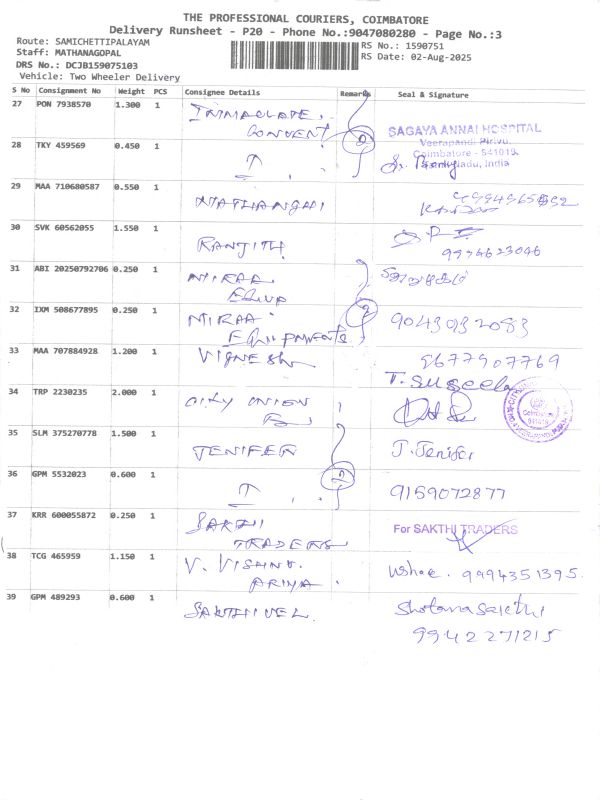 THE PROFESSIONAL COURIERS, COIMBATORE
Delivery Runsheet - P20 - Phone No.:9047080280 - Page No.:3
Route: SAMICHETTIPALAYAM
Staff: MATHANAGOPAL
DRS No.: DCJB159075103
Vehicle: Two Wheeler Delivery
RS No.: 1590751
RS Date: 02-Aug-2025
S No Consignment No Weight PCS Consignee Details Remarks Seal & Signature
27 PON 7938570 1.300 1 IMMACLATE. CONVENT
SAGAYA ANNAI HOSPITAL
Veerapandi Pirivu,
Coimbatore - 641019.
Tamilnadu, India
28 TKY 459569 0.450 1 2
29 MAA 710680587 0.550 1 MATHANGHI
30 SVK 60562055 1.550 1 RANJITH 9994623046
31 ABI 20250792706 0.250 1 MIRAA EQUP
32 IXM 508677895 0.250 1 MIRAA EQUIPMENTS 2 9043032083
33 MAA 707884928 1.200 1 VIGNESH 9677907769
T. Suseela
34 TRP 2230235 2.000 1 CITY UNION
35 SLM 375270778 1.500 1 JENIFER J. Jenifer
36 GPM 5532023 0.600 1 2 9159072877
37 KRR 600055872 0.250 1 SAKTHI TRADERS For SAKTHI TRADERS
38 TCG 465959 1.150 1 V. VISHNU. PRIYA. Ushae. 9994351395.
39 GPM 489293 0.600 1 SAKTHIVEL.
9942271215